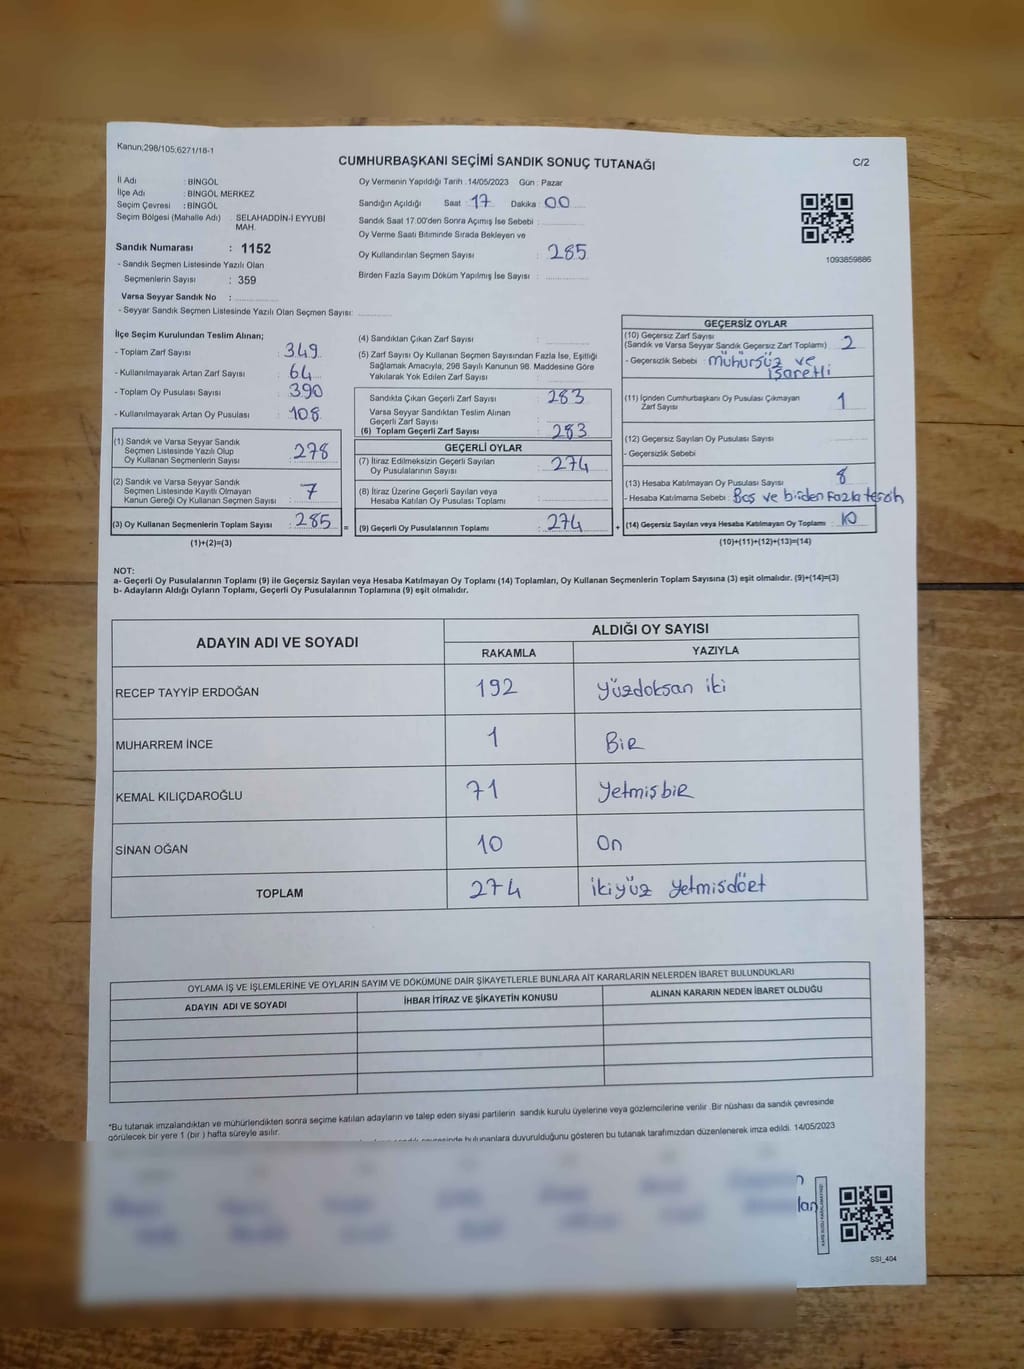 Kanun;298/105;6271/18-1
CUMHURBAŞKANI SEÇİMİ SANDIK SONUÇ TUTANAĞI
C/2
İl Adı : BİNGÖL
İlçe Adı : BİNGÖL MERKEZ
Seçim Çevresi : BİNGÖL
Seçim Bölgesi (Mahalle Adı) : SELAHADDİN-İ EYYUBİ
MAH.
Sandık Numarası : 1152
- Sandık Seçmen Listesinde Yazılı Olan
Seçmenlerin Sayısı : 359
Varsa Seyyar Sandık No :
- Seyyar Sandık Seçmen Listesinde Yazılı Olan Seçmen Sayısı:
Oy Vermenin Yapıldığı Tarih :14/05/2023 Gün : Pazar
Sandığın Açıldığı Saat : 17 Dakika : 00
Sandık Saat 17:00'den Sonra Açımış İse Sebebi :
Oy Verme Saati Bitiminde Sırada Bekleyen ve
Oy Kullandırılan Seçmen Sayısı : 285
Birden Fazla Sayım Döküm Yapılmış İse Sayısı :
1093859886
İlçe Seçim Kurulundan Teslim Alınan;
- Toplam Zarf Sayısı : 349
- Kullanılmayarak Artan Zarf Sayısı : 64
- Toplam Oy Pusulası Sayısı : 390
- Kullanılmayarak Artan Oy Pusulası : 108
(1) Sandık ve Varsa Seyyar Sandık
Seçmen Listesinde Yazılı Olup
Oy Kullanan Seçmenlerin Sayısı : 278
(2) Sandık ve Varsa Seyyar Sandık
Seçmen Listesinde Kayıtlı Olmayan
Kanun Gereği Oy Kullanan Seçmen Sayısı : 7
(3) Oy Kullanan Seçmenlerin Toplam Sayısı : 285 =
(1)+(2)=(3)
(4) Sandıktan Çıkan Zarf Sayısı :
(5) Zarf Sayısı Oy Kullanan Seçmen Sayısından Fazla İse, Eşitliği
Sağlamak Amacıyla, 298 Sayılı Kanunun 98. Maddesine Göre
Yakılarak Yok Edilen Zarf Sayısı :
Sandıkta Çıkan Geçerli Zarf Sayısı : 283
Varsa Seyyar Sandıktan Teslim Alınan
Geçerli Zarf Sayısı :
(6) Toplam Geçerli Zarf Sayısı : 283
GEÇERLİ OYLAR
(7) İtiraz Edilmeksizin Geçerli Sayılan
Oy Pusulalarının Sayısı : 274
(8) İtiraz Üzerine Geçerli Sayılan veya
Hesaba Katılan Oy Pusulaları Toplamı :
(9) Geçerli Oy Pusulalarının Toplamı : 274 +
GEÇERSİZ OYLAR
(10) Geçersiz Zarf Sayısı
(Sandık ve Varsa Seyyar Sandık Geçersiz Zarf Toplamı) : 2
- Geçersizlik Sebebi : Mühürsüz ve
işaretli
(11) İçinden Cumhurbaşkanı Oy Pusulası Çıkmayan
Zarf Sayısı : 1
(12) Geçersiz Sayılan Oy Pusulası Sayısı :
- Geçersizlik Sebebi
(13) Hesaba Katılmayan Oy Pusulası Sayısı : 8
- Hesaba Katılmama Sebebi : Boş ve birden Fazla tercih
(14) Geçersiz Sayılan veya Hesaba Katılmayan Oy Toplamı : 10
(10)+(11)+(12)+(13)=(14)
NOT:
a- Geçerli Oy Pusulalarının Toplamı (9) ile Geçersiz Sayılan veya Hesaba Katılmayan Oy Toplamı (14) Toplamları, Oy Kullanan Seçmenlerin Toplam Sayısına (3) eşit olmalıdır. (9)+(14)=(3)
b- Adayların Aldığı Oyların Toplamı, Geçerli Oy Pusulalarının Toplamına (9) eşit olmalıdır.
ADAYIN ADI VE SOYADI
ALDIĞI OY SAYISI
RAKAMLA YAZIYLA
RECEP TAYYİP ERDOĞAN 192 yüzdoksan iki
MUHARREM İNCE 1 Bir
KEMAL KILIÇDAROĞLU 71 yetmişbir
SİNAN OĞAN 10 On
TOPLAM 274 ikiyüz yetmişdört
OYLAMA İŞ VE İŞLEMLERİNE VE OYLARIN SAYIM VE DÖKÜMÜNE DAİR ŞİKAYETLERLE BUNLARA AİT KARARLARIN NELERDEN İBARET BULUNDUKLARI
ADAYIN ADI VE SOYADI İHBAR İTİRAZ VE ŞİKAYETİN KONUSU ALINAN KARARIN NEDEN İBARET OLDUĞU
*Bu tutanak imzalandıktan ve mühürlendikten sonra seçime katılan adayların ve talep eden siyasi partilerin sandık kurulu üyelerine veya gözlemcilerine verilir .Bir nüshası da sandık çevresinde
görülecek bir yere 1 (bir ) hafta süreyle asılır.
bulunanlara duyurulduğunu gösteren bu tutanak tarafımızdan düzenlenerek imza edildi. 14/05/2023
SSİ_404